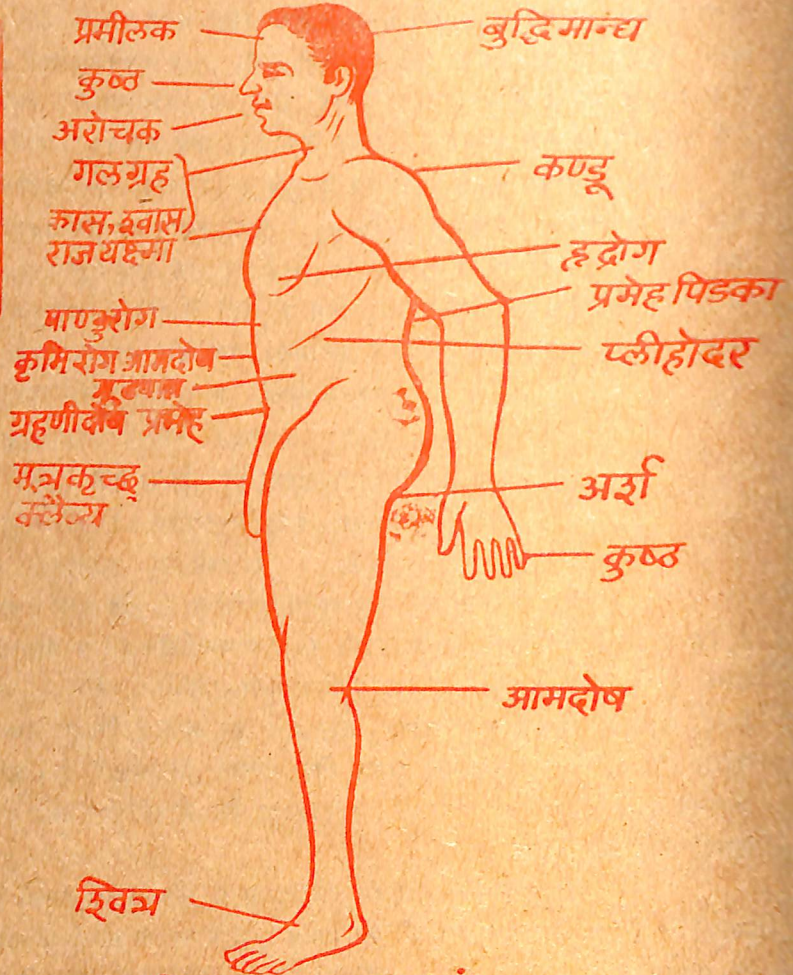 प्रमीलक
कुष्ठ
अरोचक
गलग्रह
कास, श्वास
राजयक्ष्मा
पाण्डुरोग
कृमिरोग आमदोष
ग्रहणीदोष प्रमेह
मूत्रकृच्छ्र
क्लैव्य
बुद्धिमान्द्य
कण्डू
हृद्रोग
प्रमेह पिडका
प्लीहोदर
अर्श
कुष्ठ
आमदोष
श्वित्र